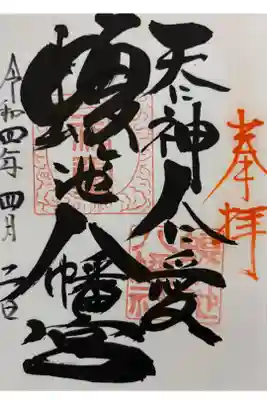 奉拝
天に神人に愛
蝮池八幡宮
令和四年四月二日